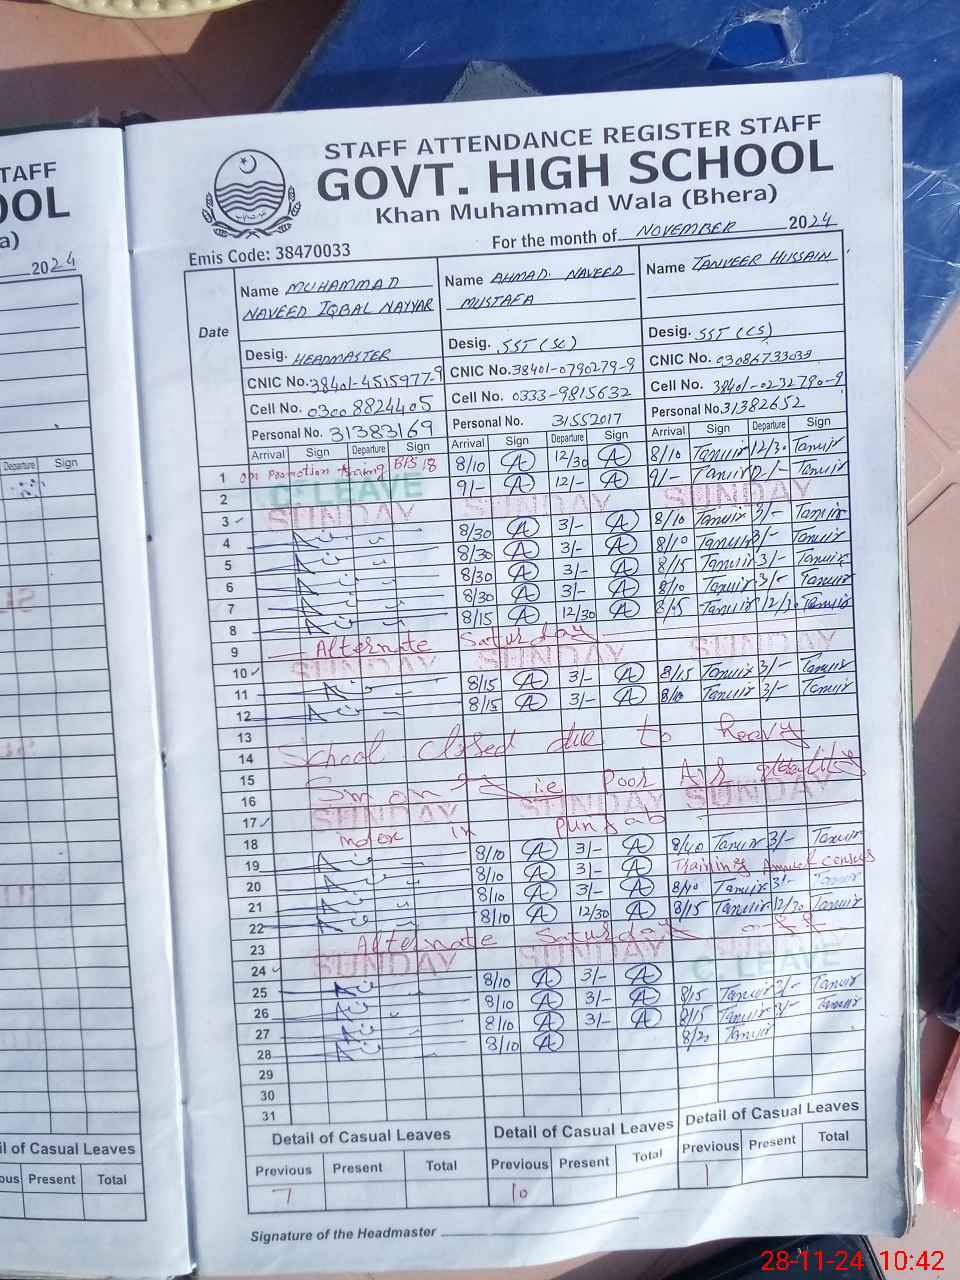 TAFF
OOL
a)
2024
Departure Sign
il of Casual Leaves
ous Present Total
STAFF ATTENDANCE REGISTER STAFF
GOVT. HIGH SCHOOL
Khan Muhammad Wala (Bhera)
Emis Code: 38470033
For the month of NOVEMBER 2024
Date
Name MUHAMMAD
NAVEED IQBAL NAYYAR
Desig. HEADMASTER
CNIC No. 38401-4515977-9
Cell No. 0300 8824405
Personal No. 31383169
Name AHMAD NAVEED
MUSTAFA
Desig. SST (SC)
CNIC No. 38401-0790279-9
Cell No. 0333-9815632
Personal No. 31552017
Name TANVEER HUSSAIN
Desig. SST (CS)
CNIC No. 03086733039
Cell No. 38401-0232790-9
Personal No. 31382652
Arrival Sign Departure Sign Arrival Sign Departure Sign Arrival Sign Departure Sign
1 on Promotion training BPS 18 8/10 A 12/30 A 8/10 Tanvir 12/30 Tanvir
C. LEAVE 9/- A 12/- A 9/- Tanvir 12/- Tanvir
2
SUNDAY SUNDAY SUNDAY
3
4 8/30 A 3/- A 8/10 Tanvir 3/- Tanvir
5 8/30 A 3/- A 8/10 Tanvir 3/- Tanvir
6 8/30 A 3/- A 8/15 Tanvir 3/- Tanvir
7 8/30 A 3/- A 8/10 Tanvir 3/- Tanvir
8 8/15 A 12/30 A 8/15 Tanvir 12/30 Tanvir
9 Alternate Saturday
10 SUNDAY SUNDAY SUNDAY
11 8/15 A 3/- A 8/15 Tanvir 3/- Tanvir
12 8/15 A 3/- A 8/10 Tanvir 3/- Tanvir
13
14 School closed due to heavy
15
16 Smog i.e Poor Air quality
17 SUNDAY SUNDAY SUNDAY
index in Punjab
18 8/10 A 3/- A 8/40 Tanvir 3/- Tanvir
19 8/10 A 3/- A Training Annual census
20 8/10 A 3/- A 8/40 Tanvir 3/- Tanvir
21 8/10 A 12/30 A 8/15 Tanvir 12/30 Tanvir
22
23 Alternate Saturday off
24 SUNDAY SUNDAY SUNDAY
C. LEAVE
25 8/10 A 3/- A
26 8/10 A 3/- A 8/15 Tanvir 3/- Tanvir
27 8/10 A 3/- A 8/15 Tanvir 3/- Tanvir
28 8/10 A 8/20 Tanvir
29
30
31
Detail of Casual Leaves Detail of Casual Leaves Detail of Casual Leaves
Previous Present Total Previous Present Total Previous Present Total
7 10 1
Signature of the Headmaster
28-11-24 10:42